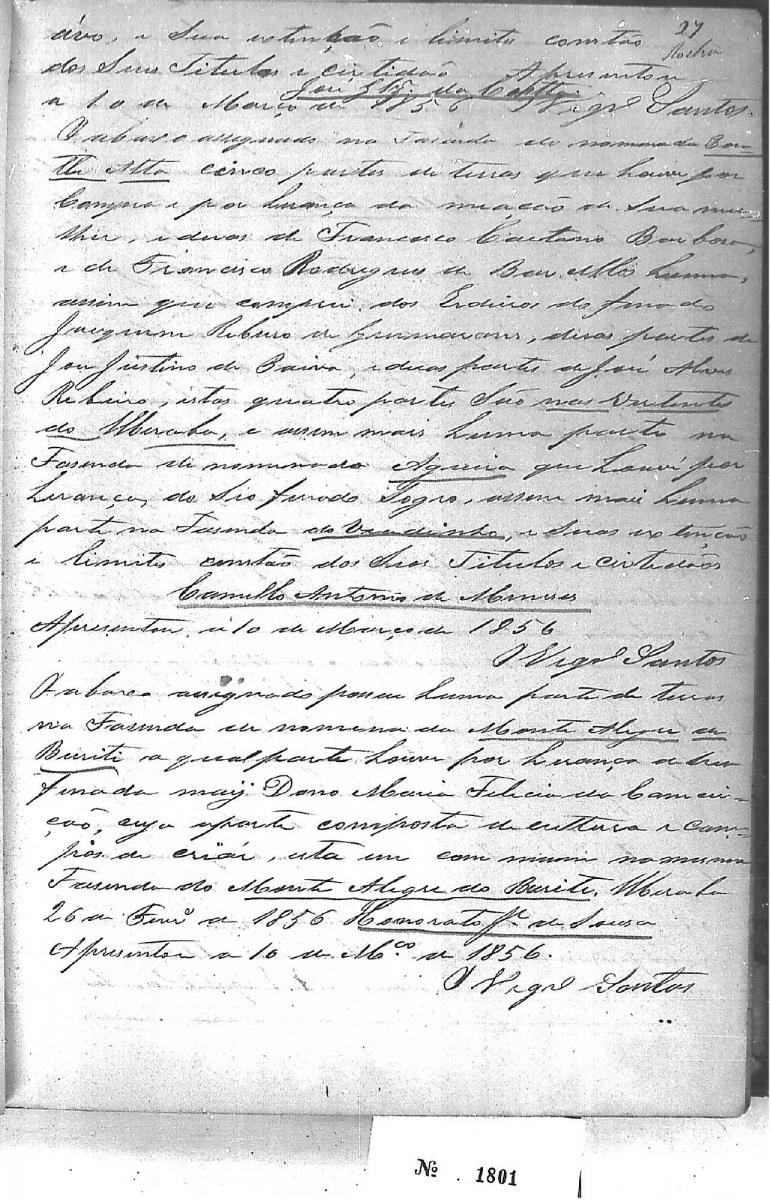 27
Rocha
ávo, e Sua extenção e limites constão
dos Seus Titulos e certidão Apresentou
José da Costa
a 10 de Março de 1856 O Vigrº Santos.
O abaxo assignado na Fasenda de nomenada
Alta cinco partes de terras que houve por
Compra e por herança da meação de Sua mu-
lher, e duas de Francisco Caetano Barbosa,
e de Francisco Rodrigues de Barcellos huma,
assim que comprei dos Erdeiros do finado
Joaquim Ribeiro de Guimaraens, duas partes de
José Justino de Paiva, e duas partes de José Alves
Ribeiro, estas quatro partes São nas Vertentes
do Uberaba, e assim mais huma parte na
Fasenda de nomenada que houve por
herança, do Seo finado Sogro, assim mais huma
parte na Fasenda do Veadinho, e Suas extenção
e limites constão dos Seos Titulos e certidãos
Camillo Antonio de Meneses
Apresentou a 10 de Março de 1856
O Vigrº Santos
O abaxo assignado possue huma parte de terras
na Fasenda de nomenada Monte Alegre do
Buriti a qual parte houve por herança de sua
finada maij Dona Maria Felicia da Conceei-
ção, cuja aparte composta de cultura e cam-
pos de criár, esta em commum na mesma
Fasenda do Monte Alegre do Buriti. Uberaba
26 de Fevrº de 1856 Honorato Fª de Sousa
Apresentou a 10 de Mço de 1856.
O Vigrº Santos
Nº 1801